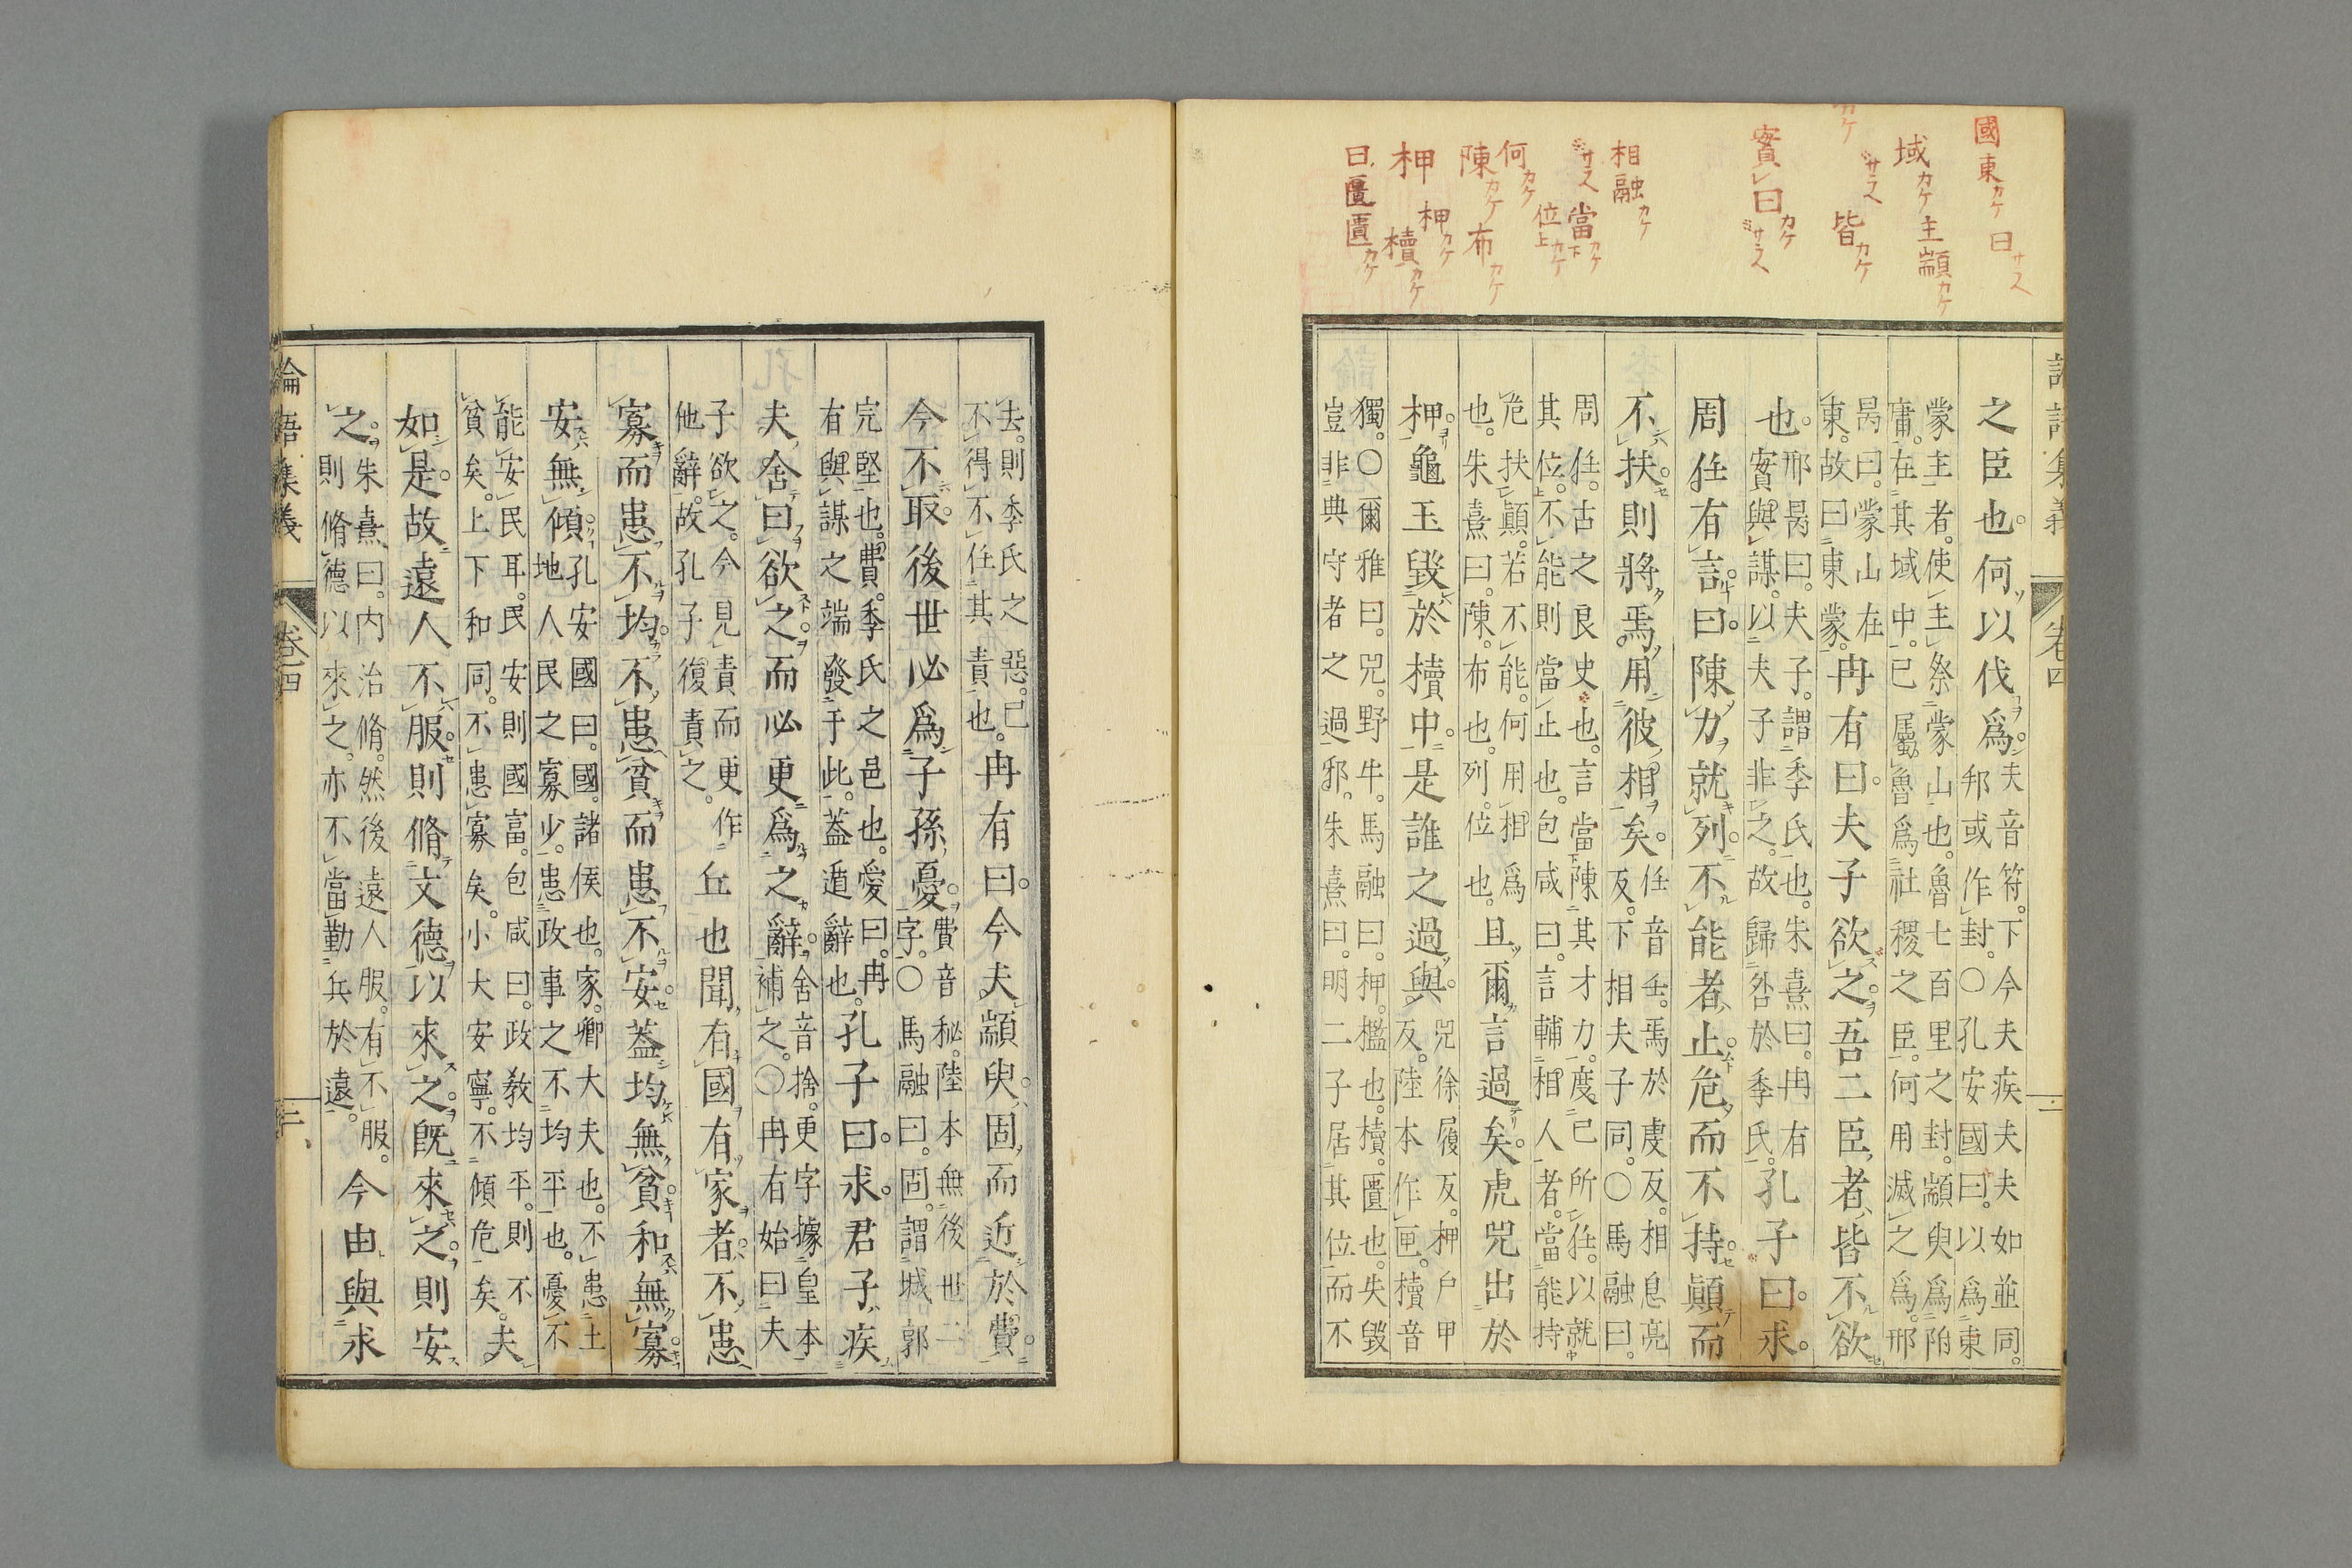 國東カケ曰サス
域カケ主顓カケ
カケサラス皆カケ
實曰カケサラス
相融カケ
サス當下カケ
何カケ位上カケ
陳カケ布カケ
柙柙カケ櫝カケ
曰匱匱カケ
卷四
之臣也。何以伐爲。
夫音符。下今夫疾夫夫如並同。
邦或作封。〇孔安國曰。以爲東
蒙主者。使主祭蒙山也。魯七百里之封。顓臾爲附
庸。在其域中。已屬魯爲社稷之臣。何用滅之爲。邢
昺曰。蒙山在
東。故曰東蒙。
冉有曰。夫子欲之。吾二臣者、皆不欲
也。
邢昺曰。夫子。謂季氏也。朱熹曰。冉有
實與謀。以夫子非之。故歸咎於季氏。
孔子曰。求。
周任有言。曰。陳力就列。不能者止。危而不持。顛而
不扶。則將焉用彼相矣。
任音壬。焉於虔反。相息亮
反。下相夫子同。〇馬融曰。
周任。古之良史也。言當陳其才力。度己所任。以就
其位。不能則當止也。包咸曰。言輔相人者。當能持
危扶顛。若不能。何用相爲
也。朱熹曰。陳。布也。列。位也。
且爾言過矣。虎兕出於
柙。龜玉毀於櫝中。是誰之過與。
兕徐履反。柙户甲
反。陸本作匣。櫝音
獨。〇爾雅曰。兕。野牛。馬融曰。柙。檻也。櫝。匱也。失毀
豈非典守者之過邪。朱熹曰。明二子居其位而不
去。則季氏之惡。己
不得不任其責也。
冉有曰。今夫顓臾。固而近於費。
今不取。後世必爲子孫憂。
費音秘。陸本無後世二
字。〇馬融曰。固。謂城郭
完堅也。費。季氏之邑也。愛曰。冉
有與謀之端發于此。蓋遁辭也。
孔子曰。求。君子疾
夫舍曰欲之。而必更爲之辭。
舍音捨。更字據皇本
補之。〇冉有始曰夫
子欲之。今見責而更作
他辭。故孔子復責之。
丘也聞、有國有家者。不患
寡而患不均。不患貧而患不安。蓋均無貧。和無寡。
安無傾。
孔安國曰。國。諸侯也。家。卿大夫也。不患土
地人民之寡少。患政事之不均平也。憂不
能安民耳。民安則國富。包咸曰。政教均平。則不
貧矣。上下和同。不患寡矣。小大安寧。不傾危矣。
夫
如是。故遠人不服。則脩文德以來之。既來之。則安
之。
朱熹曰。内治脩。然後遠人服。有不服。
則脩德以來之。亦不當勤兵於遠。
今由與求
論語集義
卷四